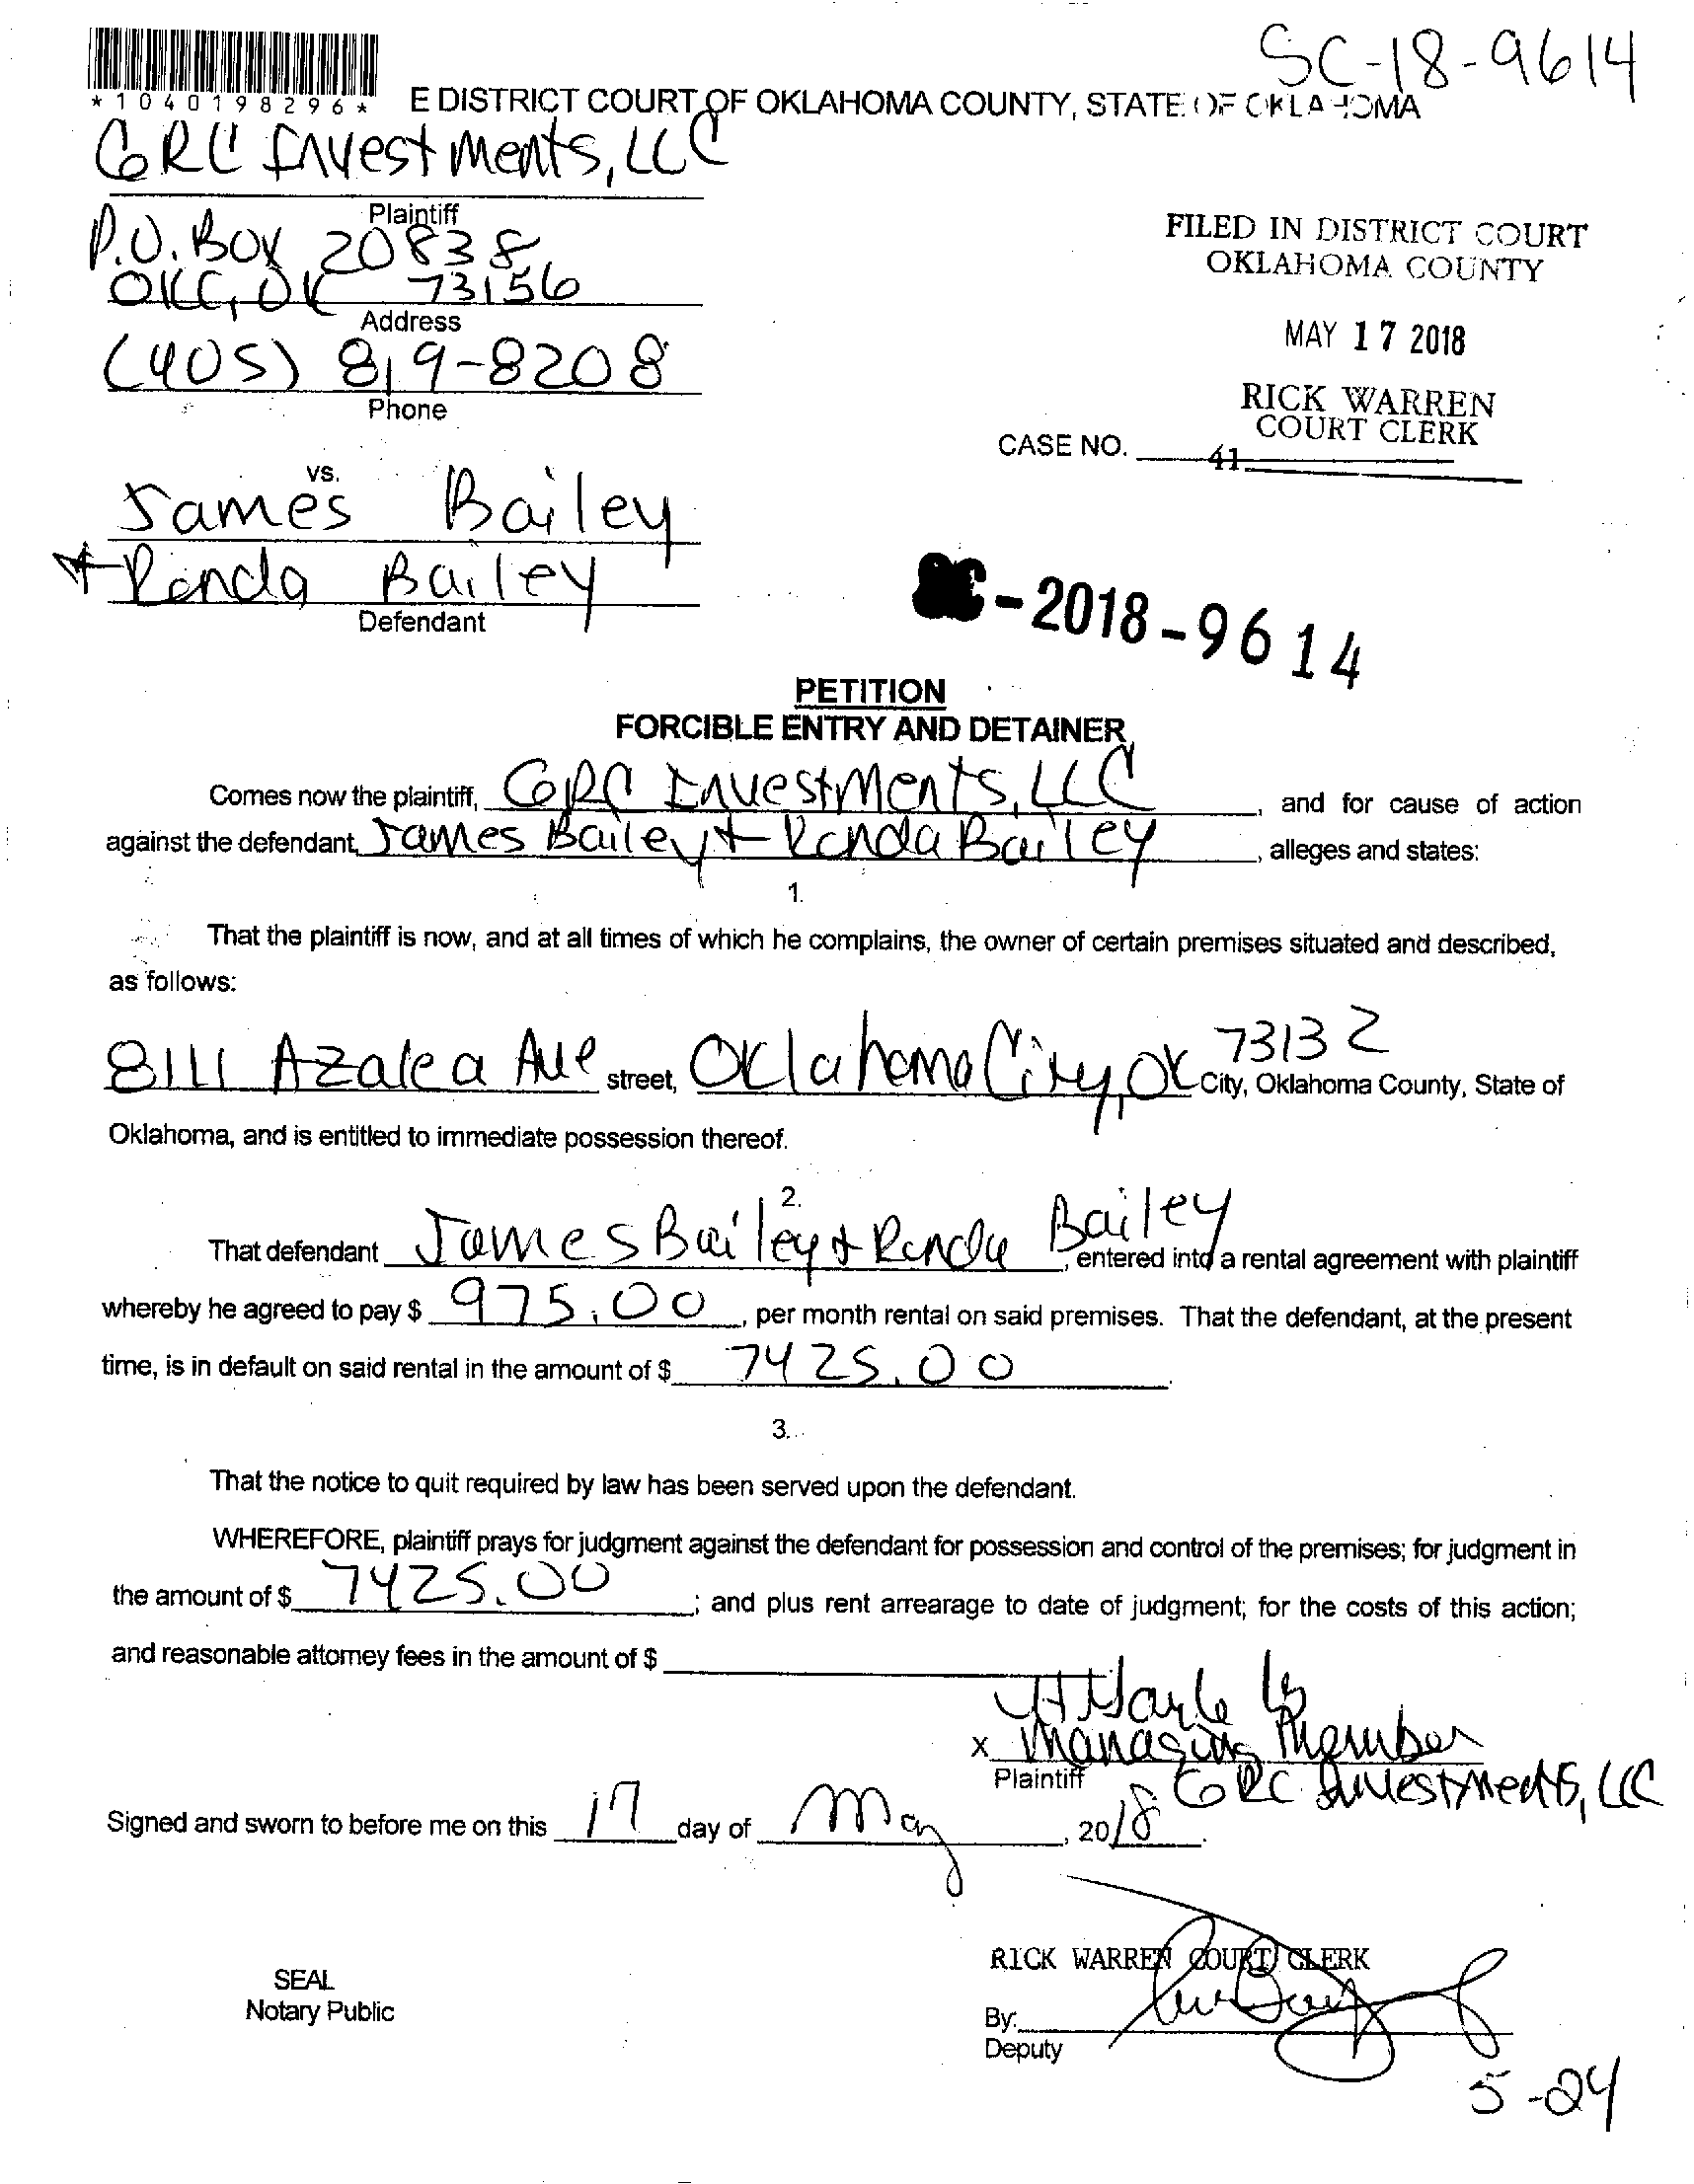 SC-18-9614
*1040198296*
E DISTRICT COURT OF OKLAHOMA COUNTY, STATE OF OKLAHOMA
GRC Investments, LLC
Plaintiff
P.O. Box 20838
OKC, OK 73156
Address
(405) 819-8208
Phone
FILED IN DISTRICT COURT
OKLAHOMA COUNTY
MAY 17 2018
RICK WARREN
COURT CLERK
CASE NO.
41
vs.
James Bailey
+ Randa Bailey
Defendant
SC-2018-9614
PETITION
FORCIBLE ENTRY AND DETAINER
Comes now the plaintiff, GRC Investments, LLC, and for cause of action
against the defendant, James Bailey + Randa Bailey, alleges and states:
1.
That the plaintiff is now, and at all times of which he complains, the owner of certain premises situated and described,
as follows:
8111 Azalea Ave street, Oklahoma City, OK 73132 City, Oklahoma County, State of
Oklahoma, and is entitled to immediate possession thereof.
2.
That defendant James Bailey + Randa Bailey, entered into a rental agreement with plaintiff
whereby he agreed to pay $ 975.00, per month rental on said premises. That the defendant, at the present
time, is in default on said rental in the amount of $ 7425.00.
3.
That the notice to quit required by law has been served upon the defendant.
WHEREFORE, plaintiff prays for judgment against the defendant for possession and control of the premises; for judgment in
the amount of $ 7425.00; and plus rent arrearage to date of judgment; for the costs of this action;
and reasonable attorney fees in the amount of $
X Managing Member
Plaintiff GRC Investments, LLC
Signed and sworn to before me on this 17 day of May, 2018.
RICK WARREN COURT CLERK
SEAL
Notary Public
By:
Deputy
5-24